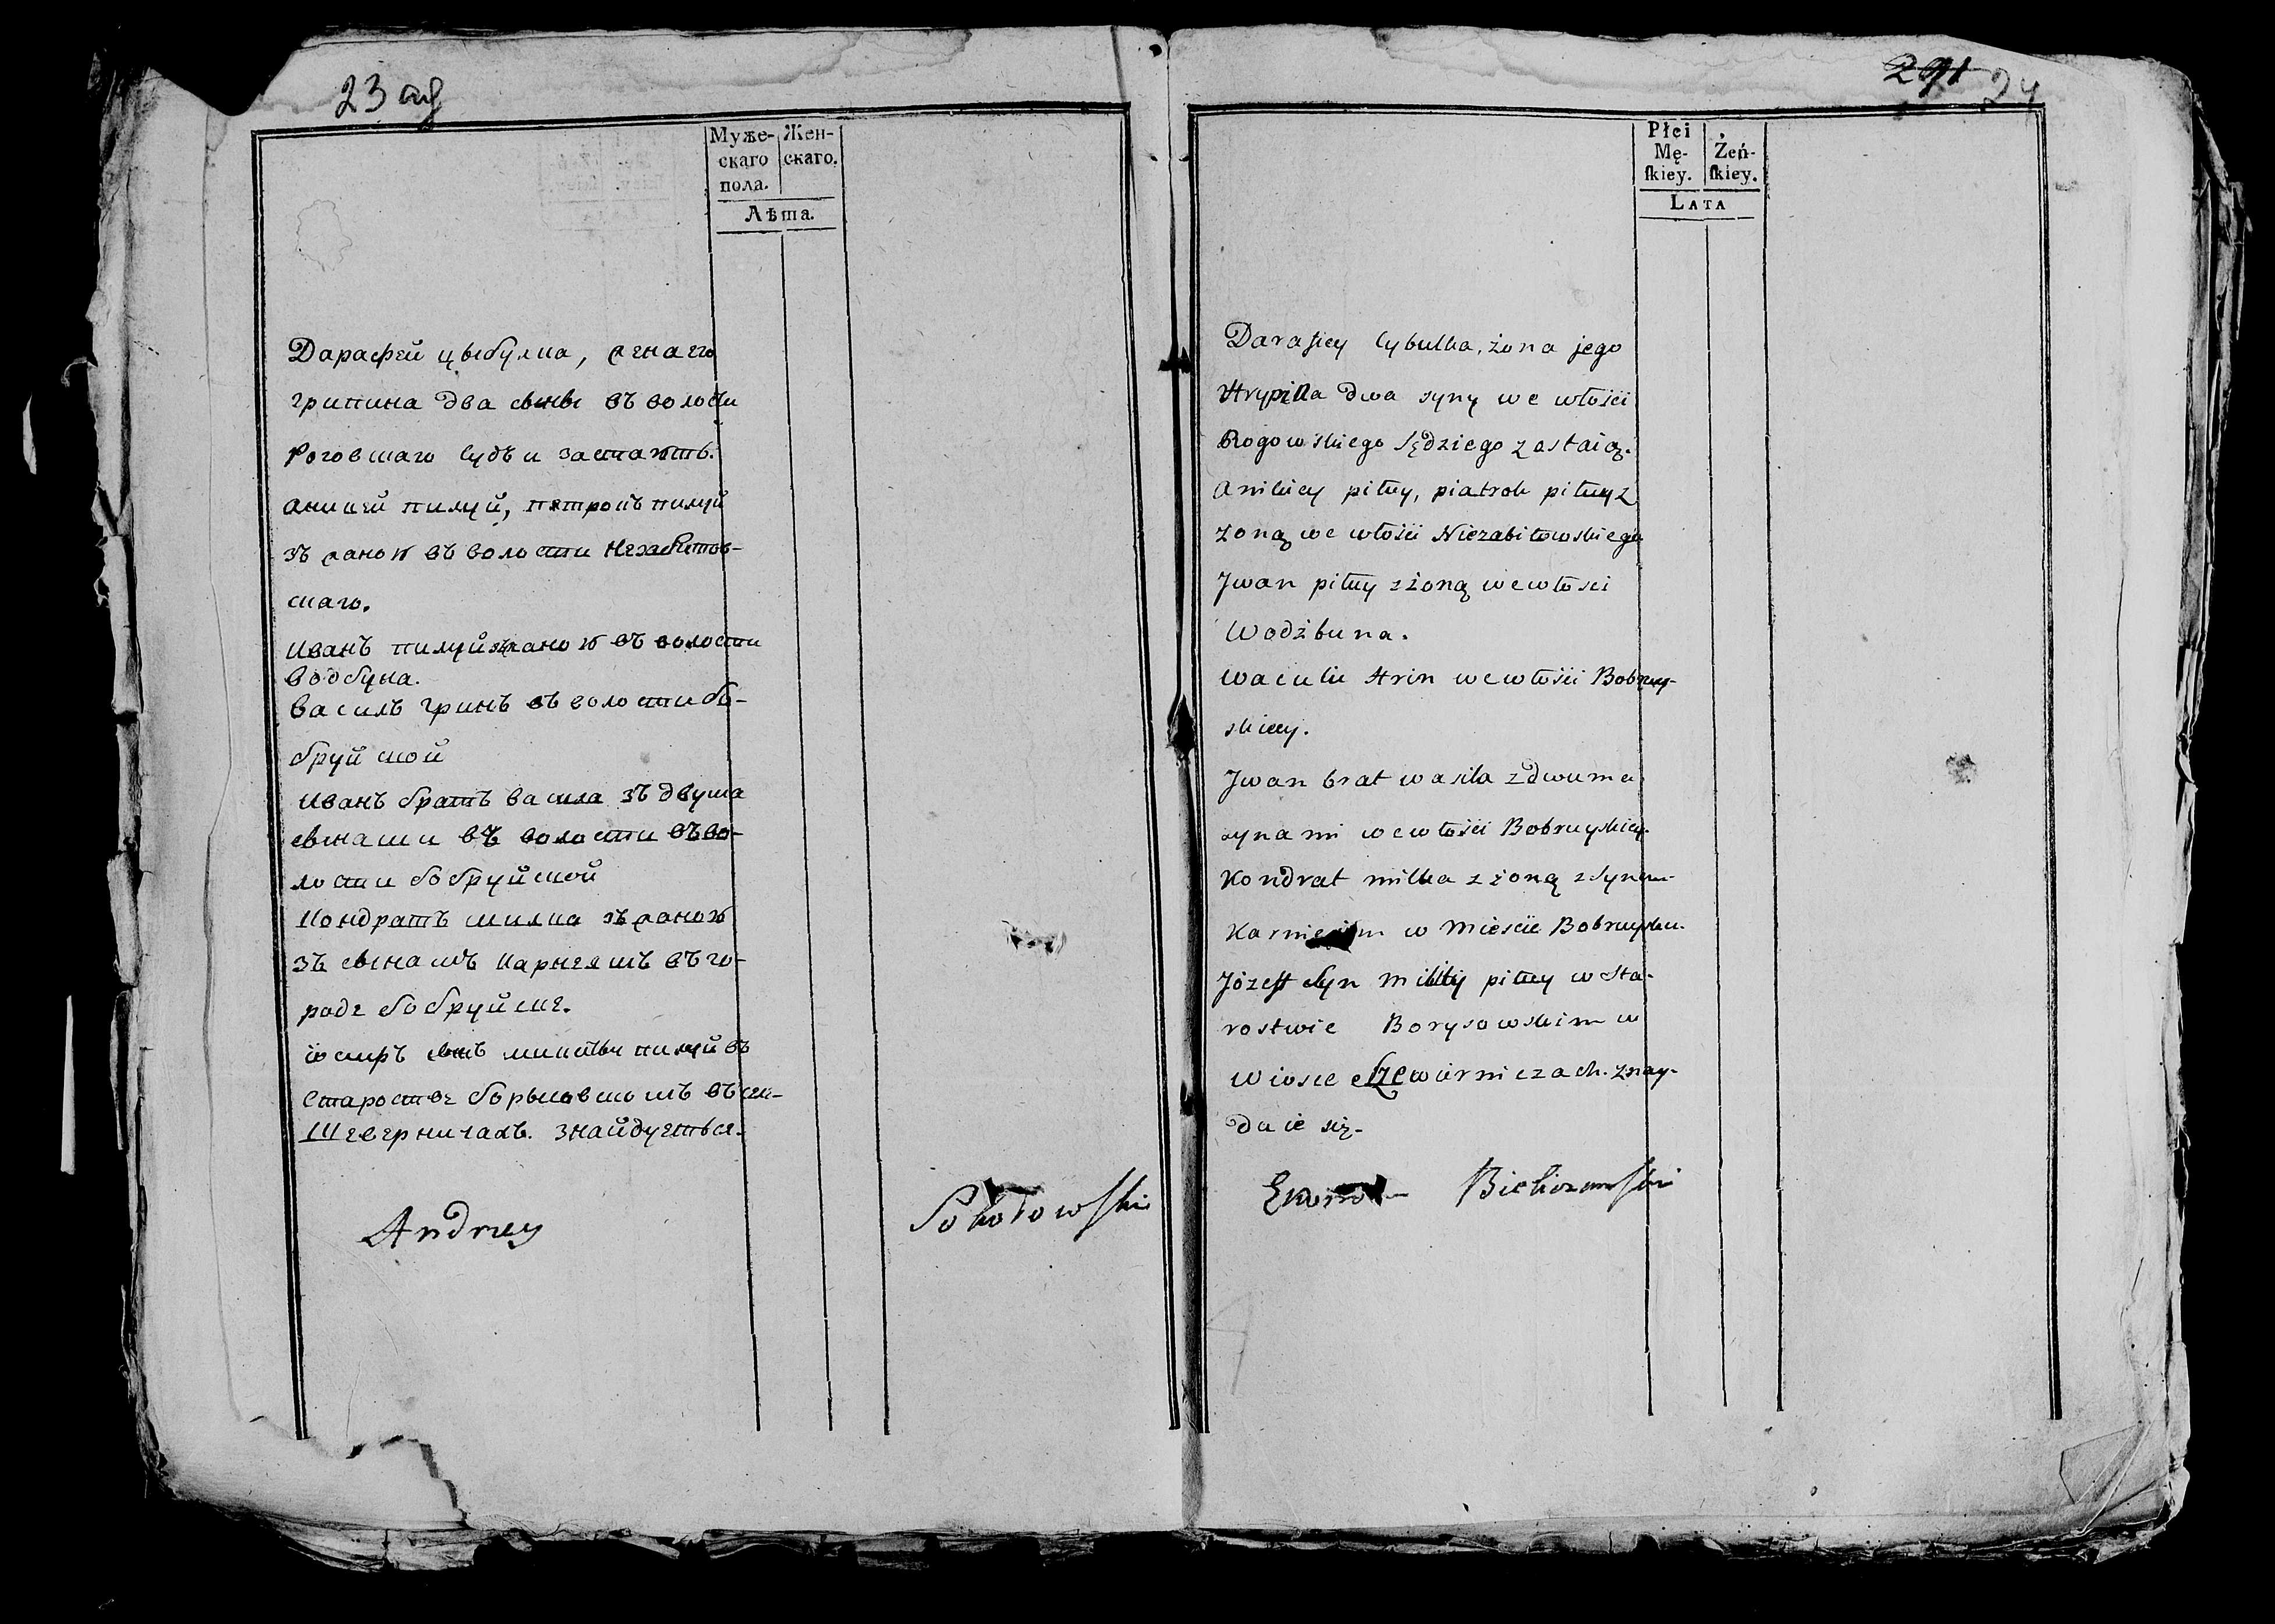 23 об
Муже-
скаго
пола.
Жен-
скаго.
Лѣта.
Дарафей цыбулка, жена его
грипина два сыны въ волости
Роговскаго Судьи застають.
Аникей пилуй, пятрокъ пилуй
зъ жаною въ волости Незабитов-
скаго.
Иванъ пилуй зъ жаною въ волости
водбуна.
Василь гринь въ волости бо-
бруйской
Иванъ братъ васила зъ двума
сынами въ волости въ во-
лости бобруйской
Кондратъ милка зъ жаною
зъ сынамъ карнеямъ въ го-
раде бобруйске.
сынъ микиты пилуй въ
Старостве борысовскомъ въ
Шеверничахъ. знайдуеться.
Andrzey
Sokołowski
291 24
Płci
Mę-
ſkiey.
Żeń-
ſkiey.
LATA
Darafiey Cybulka, żona jego
Hrypina dwa syny we włości
Rogowskiego Sędziego zastaią.
Anikiey piłuy, piatrok piłuy z
żoną we włości Niezabitowskiego
Jwan piłuy z żoną we włości
Wodźbuna.
Wasiu Hrin we włości Bobruy-
skiey.
Jwan brat wasila z dwuma
synami we włości Bobruyskiey.
Kondrat milka z żoną z synem
w Mieście Bobruysku.
Józeff Syn Mikity piłuy w Sta-
rostwie Borysowskim w
wiosce Szewierniczach. znay-
duie się.
Ekonom